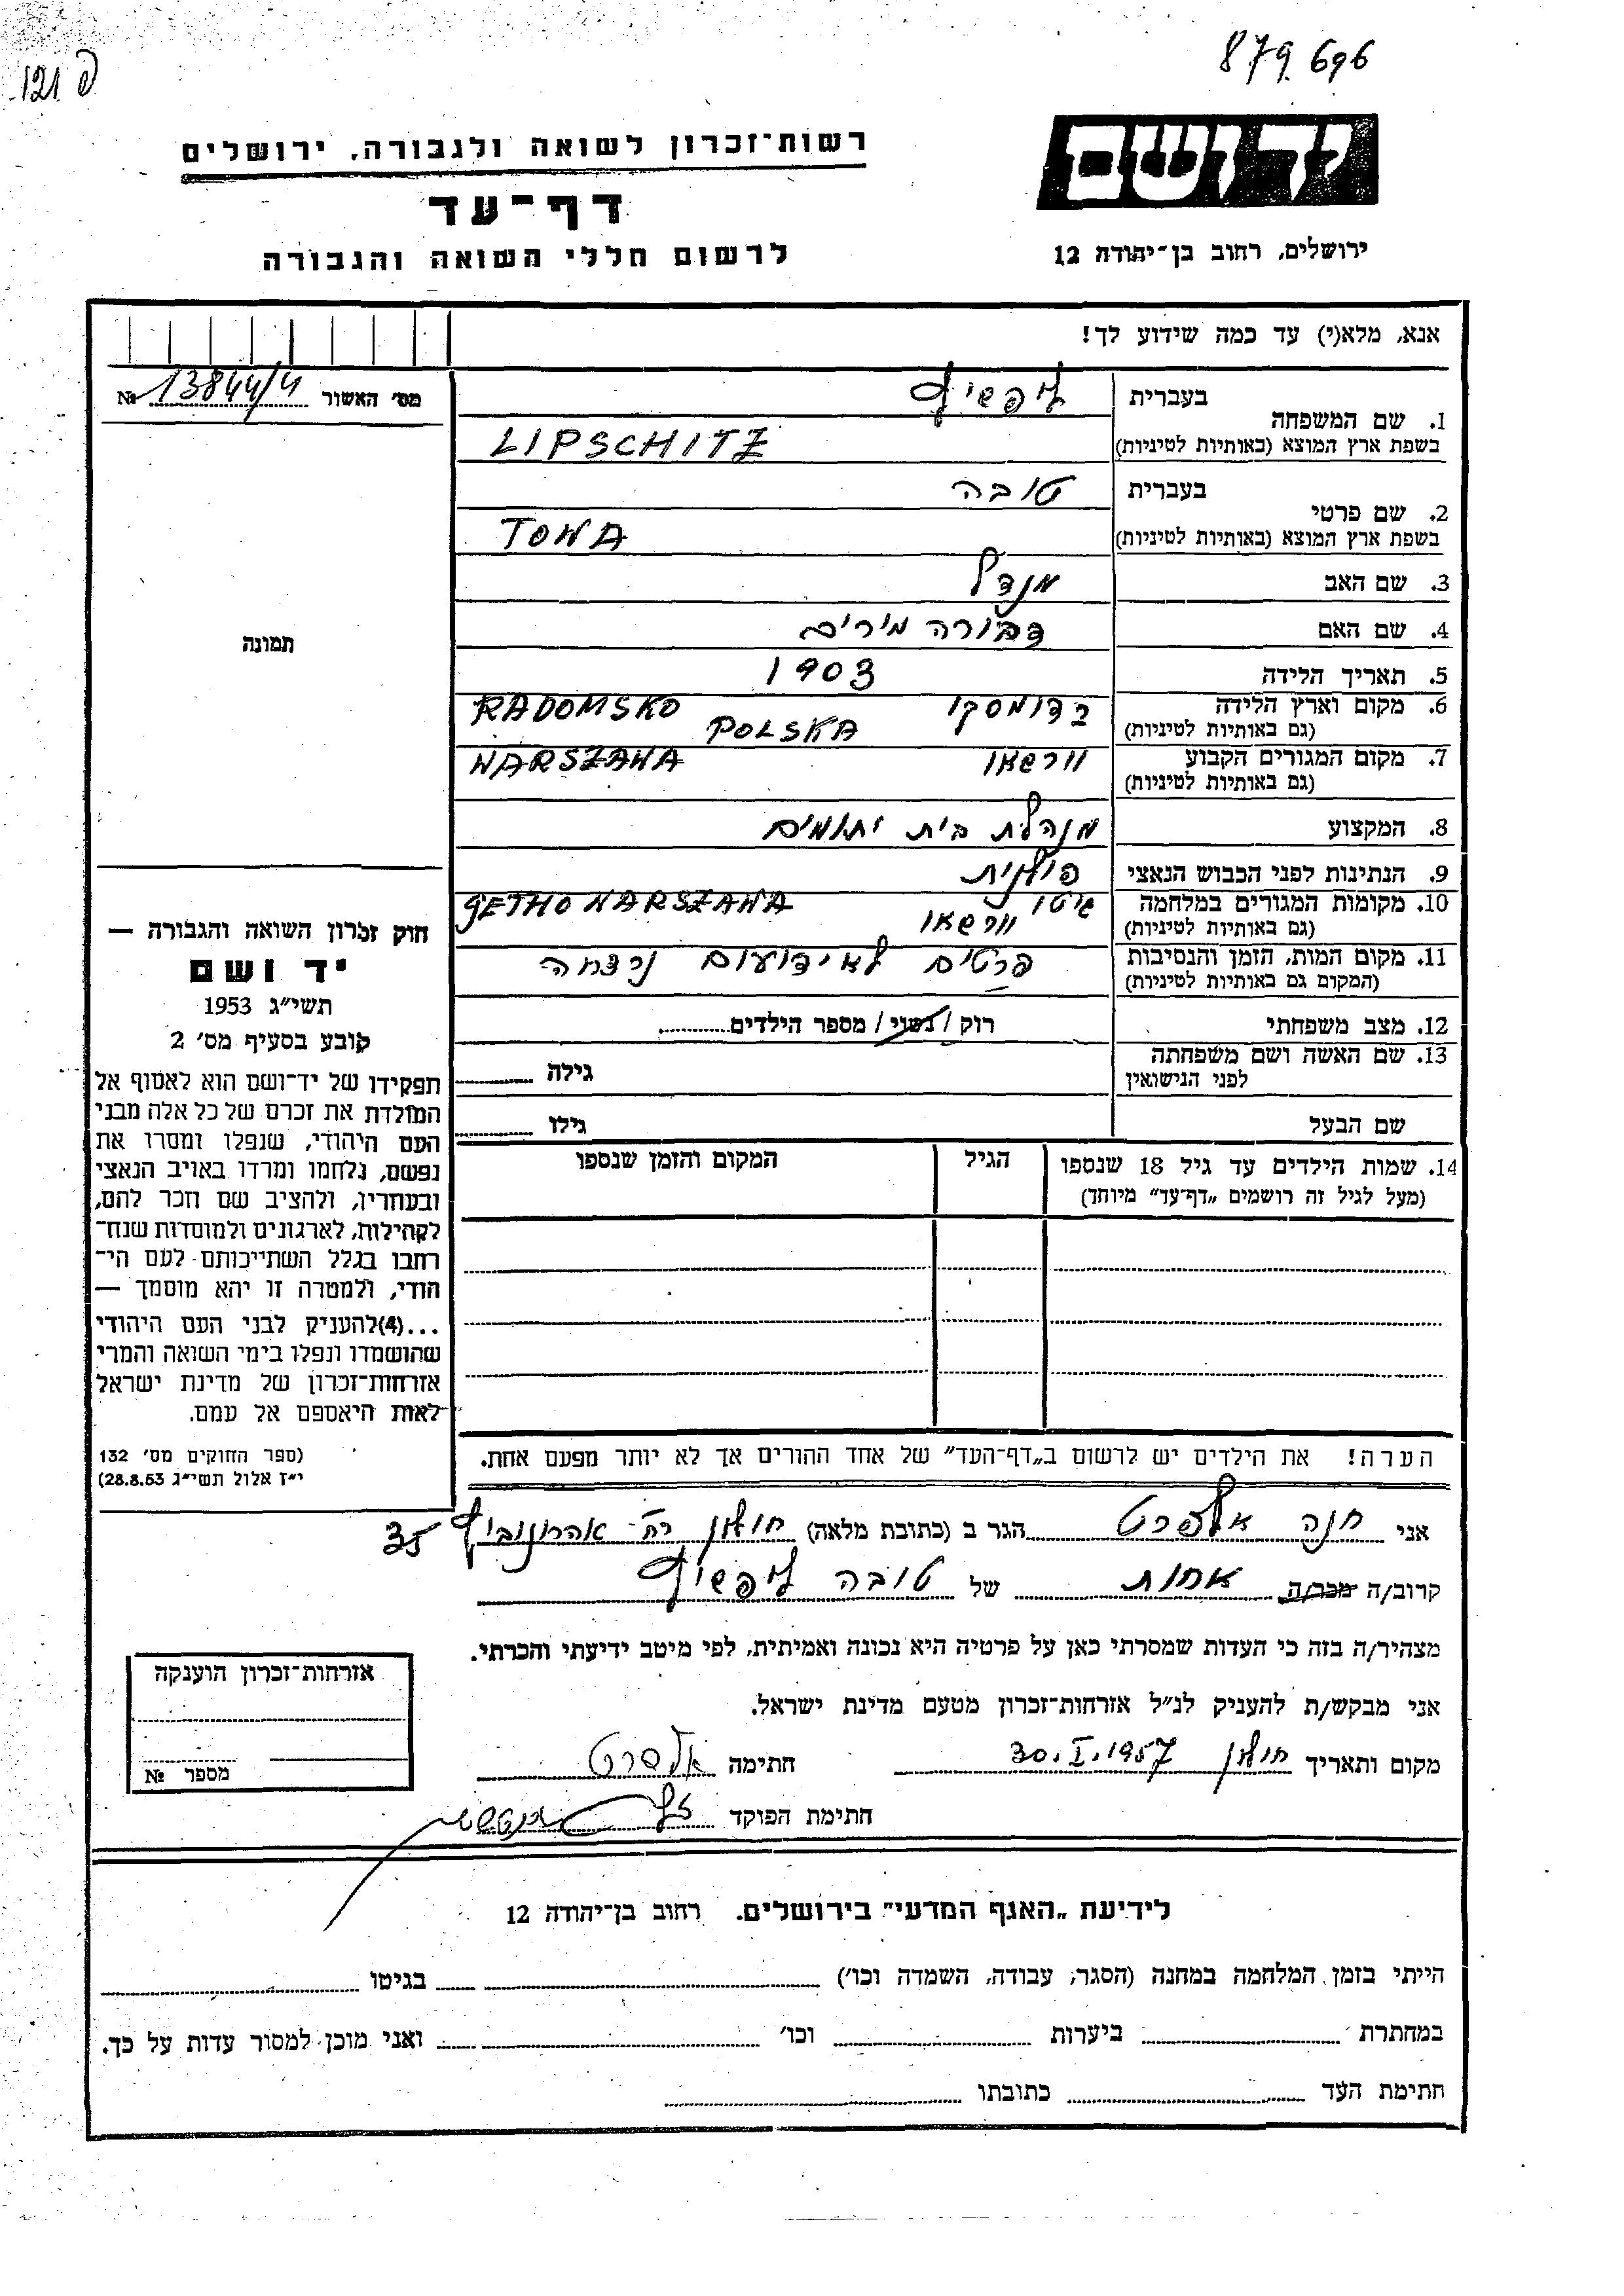 879.696
121 פ
יד ושם
ירושלים, רחוב בן-יהודה 12
רשות-זכרון לשואה ולגבורה, ירושלים
דף-עד
לרשום חללי השואה והגבורה
אנא, מלא(י) עד כמה שידוע לך!
מס' האשור № 13844/4
1. שם המשפחה בעברית ליפשיץ
בשפת ארץ המוצא (באותיות לטיניות) LIPSCHITZ
2. שם פרטי בעברית טובה
בשפת ארץ המוצא (באותיות לטיניות) TOWA
3. שם האב מנדל
4. שם האם דבורה מירים
5. תאריך הלידה 1903
6. מקום וארץ הלידה רדומסקו RADOMSKO
(גם באותיות לטיניות) POLSKA
7. מקום המגורים הקבוע וורשאו WARSZAWA
(גם באותיות לטיניות)
8. המקצוע מנהלת בית יתומים
9. הנתינות לפני הכבוש הנאצי פולנית
10. מקומות המגורים במלחמה גיטו GETHO WARSZAWA
(גם באותיות לטיניות) וורשאו
11. מקום המות, הזמן והנסיבות פרטים לא ידועים נרצחה
(המקום גם באותיות לטיניות)
12. מצב משפחתי רוק / נשוי / מספר הילדים
13. שם האשה ושם משפחתה גילה
לפני הנישואין
שם הבעל גילו
14. שמות הילדים עד גיל 18 שנספו הגיל המקום והזמן שנספו
(מעל לגיל זה רושמים „דף-עד" מיוחד)
הערה! את הילדים יש לרשום ב„דף-העד" של אחד ההורים אך לא יותר מפעם אחת.
תמונה
חוק זכרון השואה והגבורה —
יד ושם
תשי"ג 1953
קובע בסעיף מס' 2
תפקידו של יד-ושם הוא לאסוף אל
המולדת את זכרם של כל אלה מבני
העם היהודי, שנפלו ומסרו את
נפשם, נלחמו ומרדו באויב הנאצי
ובעוזריו, ולהציב שם וזכר להם,
לקהילות, לארגונים ולמוסדות שנח-
רבו בגלל השתייכותם לעם הי-
הודי, ולמטרה זו יהא מוסמך —
...(4) להעניק לבני העם היהודי
שהושמדו ונפלו בימי השואה והמרי
אזרחות-זכרון של מדינת ישראל
לאות היאספם אל עמם.
(ספר החוקים מס' 132
י"ז אלול תשי"ג 28.8.53)
אני חנה אלפרט הגר ב (כתובת מלאה) חולון רח' אהרונוביץ 35
קרוב/ה מכר/ה אחות של טובה ליפשיץ
מצהיר/ה בזה כי העדות שמסרתי כאן על פרטיה היא נכונה ואמיתית, לפי מיטב ידיעתי והכרתי.
אני מבקש/ת להעניק לנ"ל אזרחות-זכרון מטעם מדינת ישראל.
מקום ותאריך חולון 30.I.1957 חתימה אלפרט
חתימת הפוקד
אזרחות-זכרון הוענקה
מספר №
לידיעת „האגף המדעי" בירושלים. רחוב בן-יהודה 12
הייתי בזמן המלחמה במחנה (הסגר, עבודה, השמדה וכו') בגיטו
במחתרת ביערות וכו' ואני מוכן למסור עדות על כך.
חתימת העד כתובתו